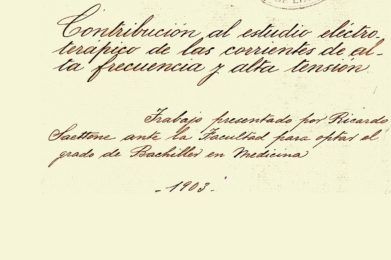 Contribución al estudio eléctro
terápico de las corrientes de al-
ta frecuencia y alta tensión
Trabajo presentado por Ricardo
Saettone ante la Facultad para optar el
grado de Bachiller en Medicina
- 1903 -